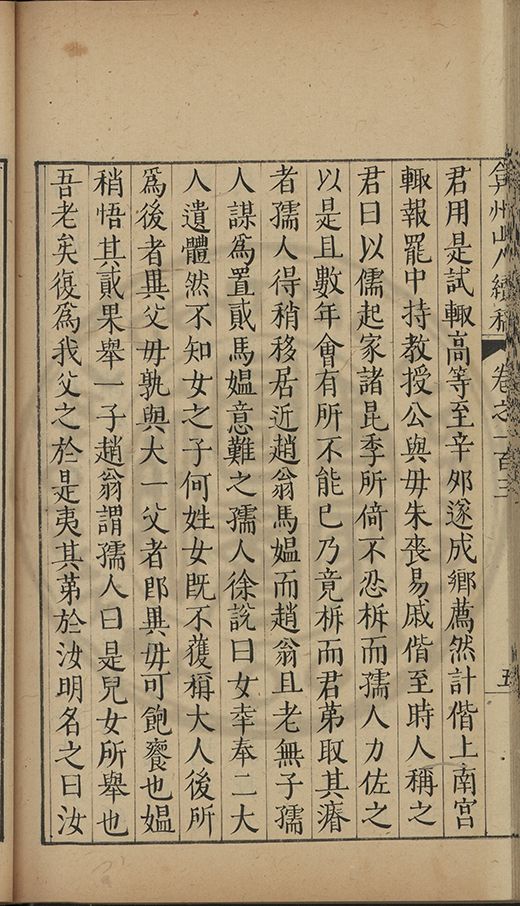 弇州山人續稿 卷之一百三 五
君用是試輙高等至辛夘遂成鄉薦然計偕上南宮
輙報罷中持教授公與毋朱喪易戚偕至時人稱之
君曰以儒起家諸昆季所倚不忍柝而孺人力佐之
以是且數年會有所不能已乃竟柝而君苐取其瘠
者孺人得稍移居近趙翁馬媼而趙翁且老無子孺
人謀爲置貳馬媼意難之孺人徐說曰女幸奉二大
人遺體然不知女之子何姓女旣不獲稱大人後所
爲後者異父毋孰與大一父者卽異毋可飽饔也媼
稍悟其貳果舉一子趙翁謂孺人曰是兒女所舉也
吾老矣復爲我父之於是夷其苐於汝明名之曰汝